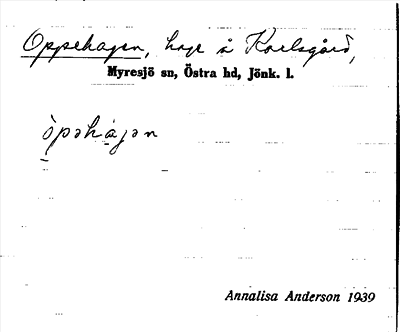 Oppehagen, hage å Karlsgård,
Myresjö sn, Östra hd, Jönk. l.
òpəhàgən
Annalisa Anderson 1939